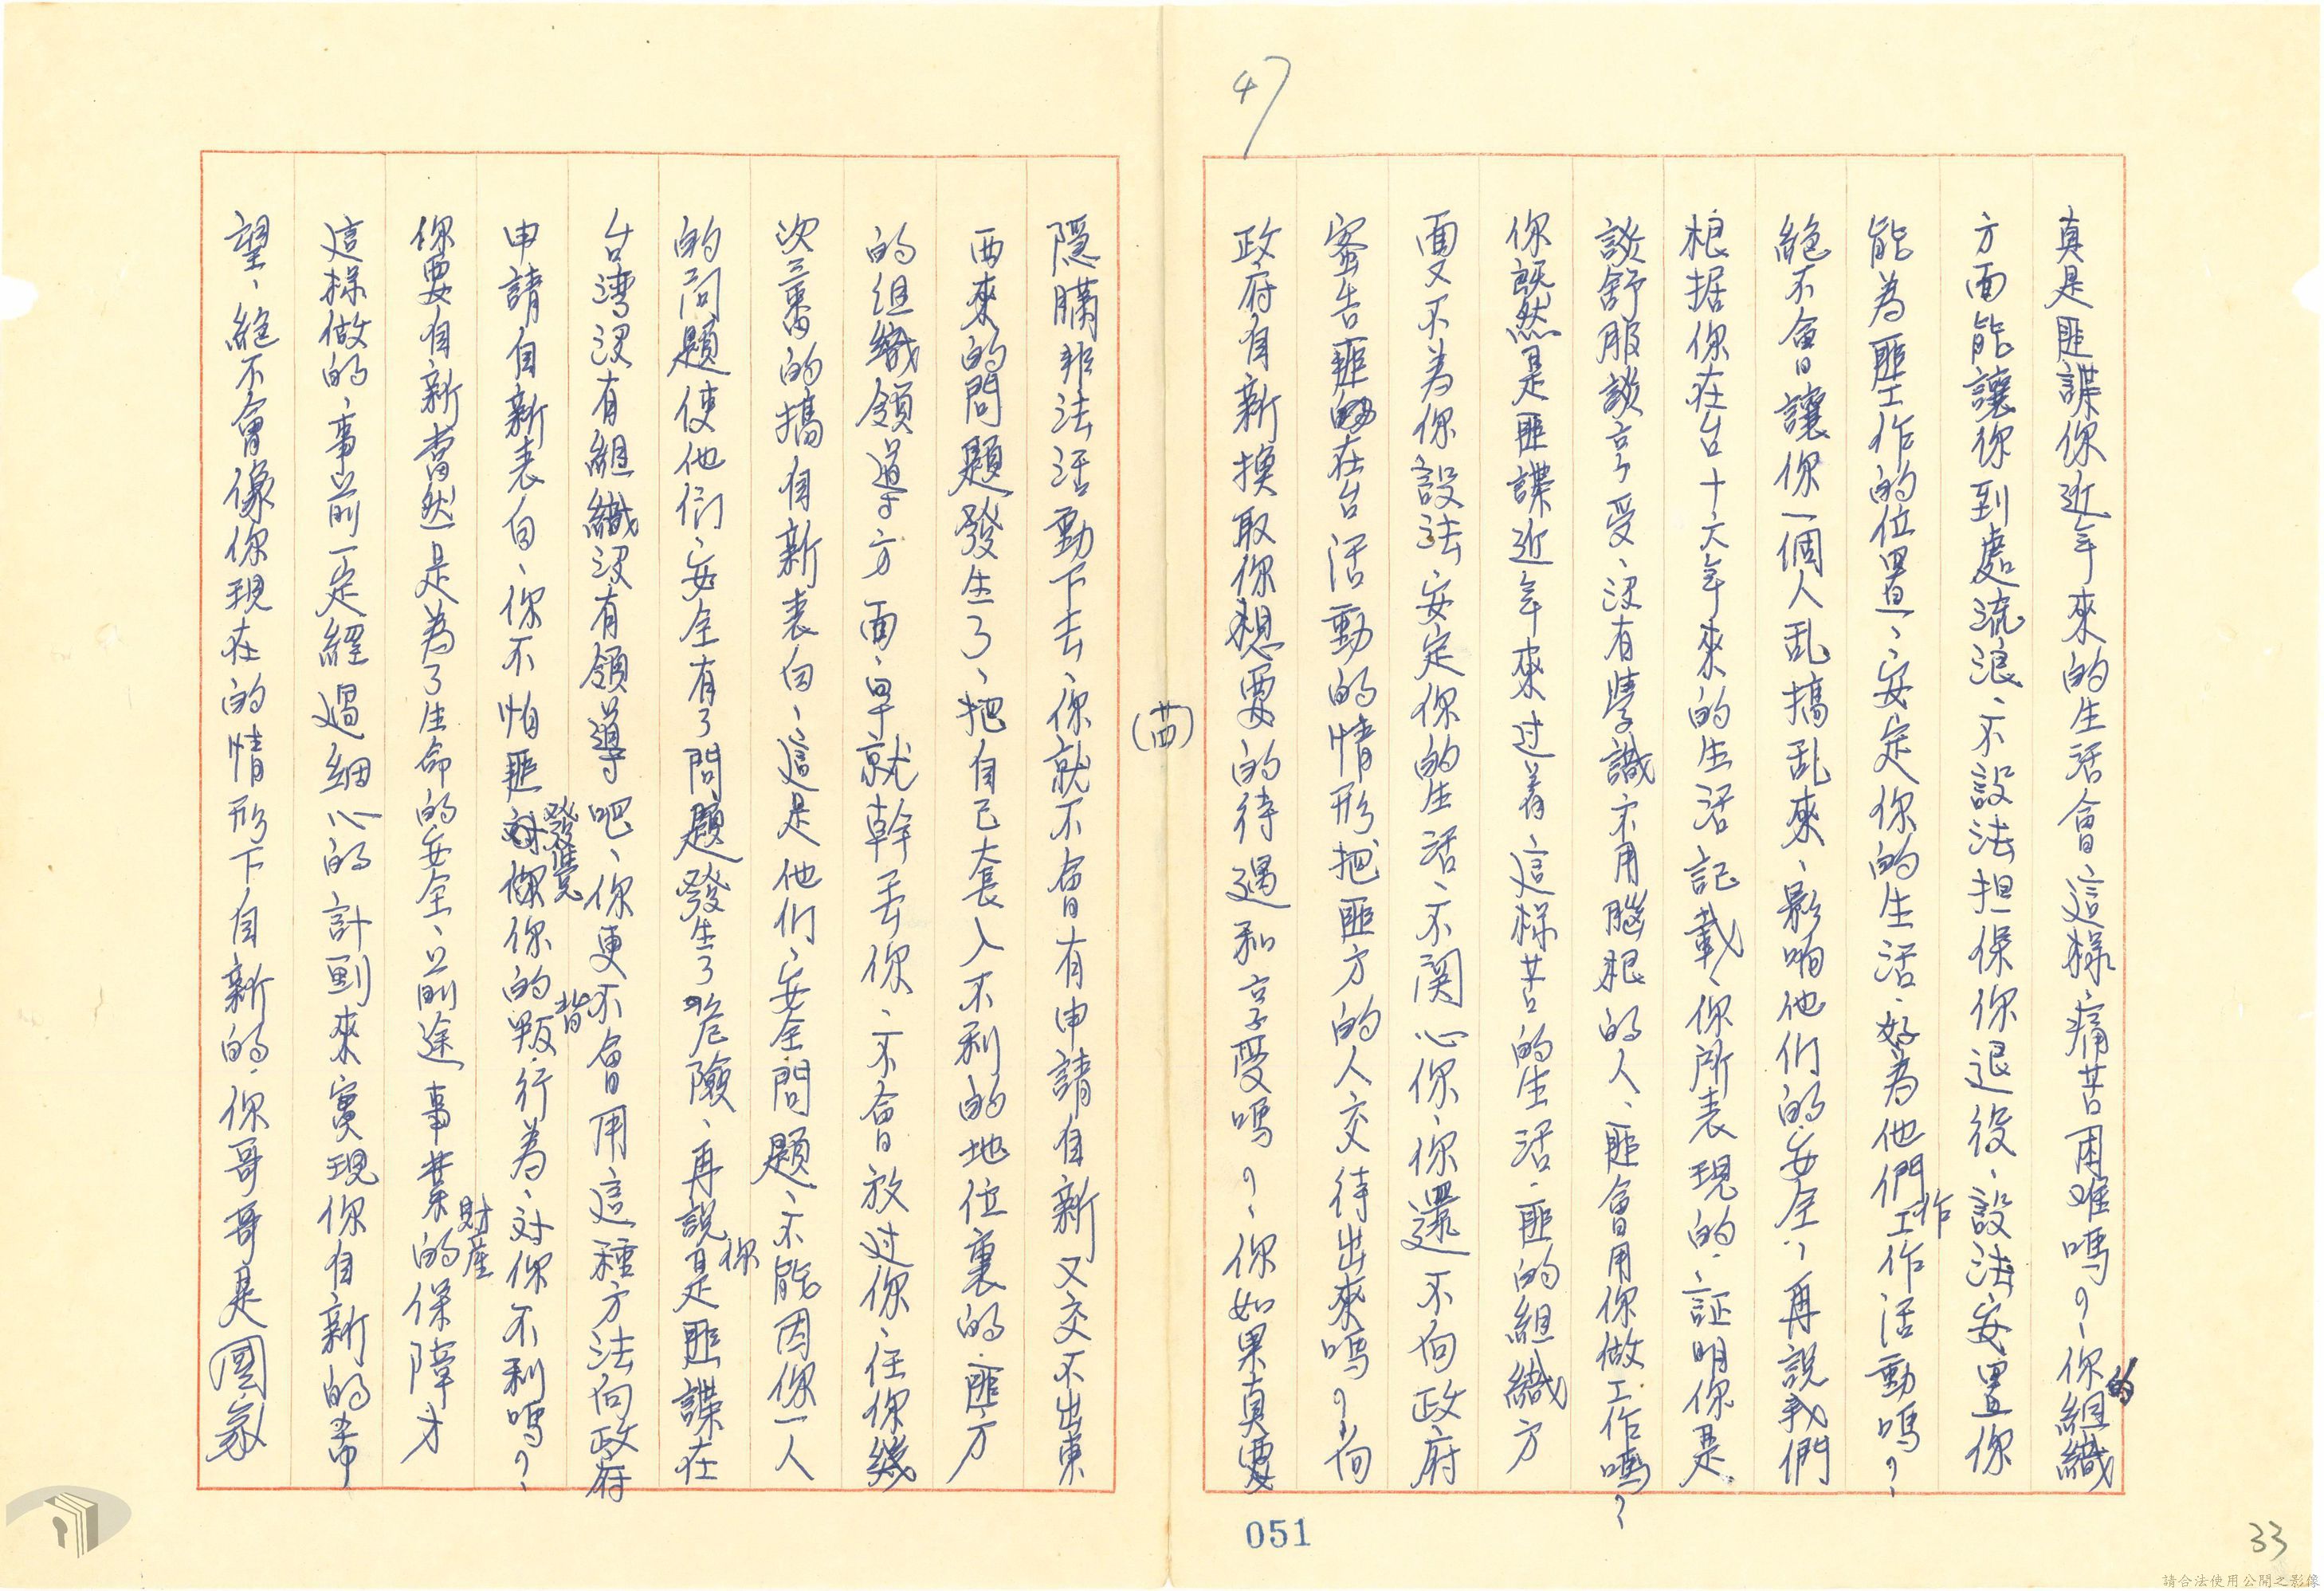 47
真是匪諜你近年來的生活會這樣痛苦困难嗎？、你的組織
方面能讓你到處流浪、不設法担保你退役、設法安置你
能為匪工作的位置、安定你的生活、好為他們工作活動嗎？、
絕不會讓你一個人乱搞乱來、影响他們的安全、再說我們
根据你在台十六年來的生活記載、你所表現的、証明你是
談舒服談享受、沒有學識不用腦根的人、匪會用你做工作嗎？、
你既然是匪諜近年來过着這樣苦的生活、匪的組織方
面又不為你設法、安定你的生活、不関心你、你還不向政府
密告匪在台活動的情形把匪方的人交待出來嗎？向
政府自新換取你想要的待遇和享受嗎？、你如果真要
(廿四)
隱瞞非法活動下去、你就不會有申請自新又交不出東
西來的問題發生了、把自己套入不利的地位裏的、匪方
的組織領導方面、早就幹丟你、不會放过你、任你幾
次三番的搞自新表白、這是他们、安全問題、不能因你一人
的问題使他们、安全有了問題發生了危險、再說你是匪諜在
台湾沒有組織沒有領導吧、你更不會用這種方法向政府
申請自新表白、你不怕匪發覺你的叛背行為、对你不利嗎？、
你要自新當然是為了生命的安全、前途事業財產的保障才
這樣做的、事前一定經過細心的計劃來實現你自新的希
望、絕不會像你現在的情形下自新的、你哥哥是國家
051
33
請合法使用公開之影像